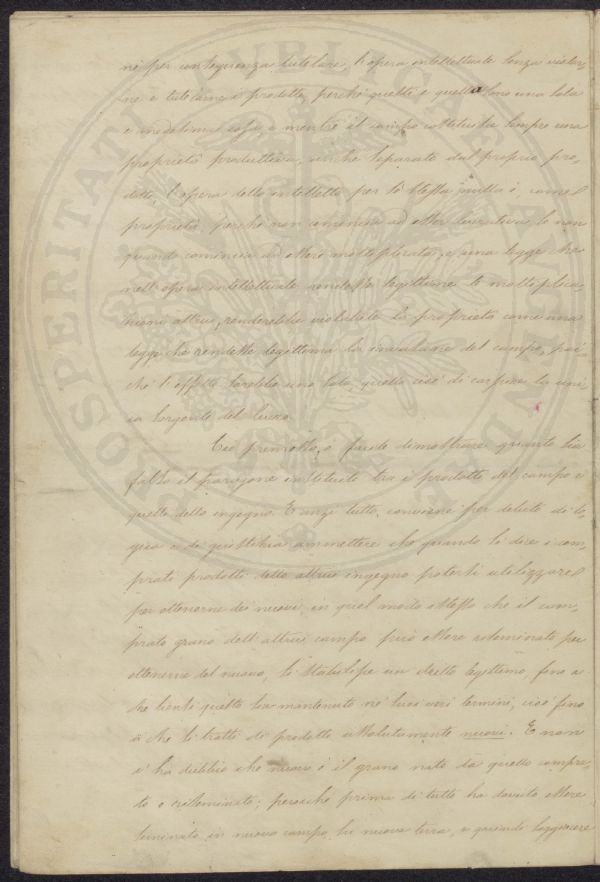 nè per conseguenza tutelare l'opera intellettuale senza
ne e tutelarne i prodotti, perchè questi e quella sono una sola
e medesima cosa, e mentre il campo costituisce sempre una
proprietà produttiva, anche separato dal proprio pro-
dotto, l'opera dello intelletto per sè stessa nulla è come
proprietà, perchè non comincia ad essere lucrativa, se non
quando comincia ad essere moltiplicata, e una legge che
nell'opera intellettuale rendesse legittime le moltiplica-
zioni altrui, renderebbe violabile la proprietà come una
legge che rendesse legittima la invasione del campo, poi-
chè l'effetto sarebbe uno solo, quello cioè di carpire la uni-
ca sorgente del lucro.
Ciò premesso, è facile dimostrare quanto sia
falso il paragone instituito tra i prodotti del campo e
quelli dello ingegno. E anzi tutto, conviene per debito di lo-
gica e di giustizia ammettere che quando si dice i com-
prati prodotti dello altrui ingegno potersi utilizzare
per ottenerne dei nuovi, in quel modo stesso che il com-
prato grano dell'altrui campo può essere riseminato per
ottenerne del nuovo, si stabilisce un diritto legittimo, fino a
che questo sia mantenuto ne' suoi veri termini, cioè fino
a che si tratti di prodotti assolutamente nuovi. E non
v'ha dubbio che nuovo è il grano nato da quello compra-
to e riseminato; perocchè prima di tutto ha dovuto essere
seminato in nuovo campo, in nuova terra, e quindi soggiacere
PROSPERITATI PVBLICAE AVGENDAE